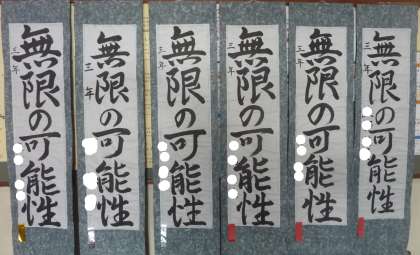 無限の可能性
三年
無限の可能性
三年
無限の可能性
三年
無限の可能性
三年
無限の可能性
三年
無限の可能性
三年